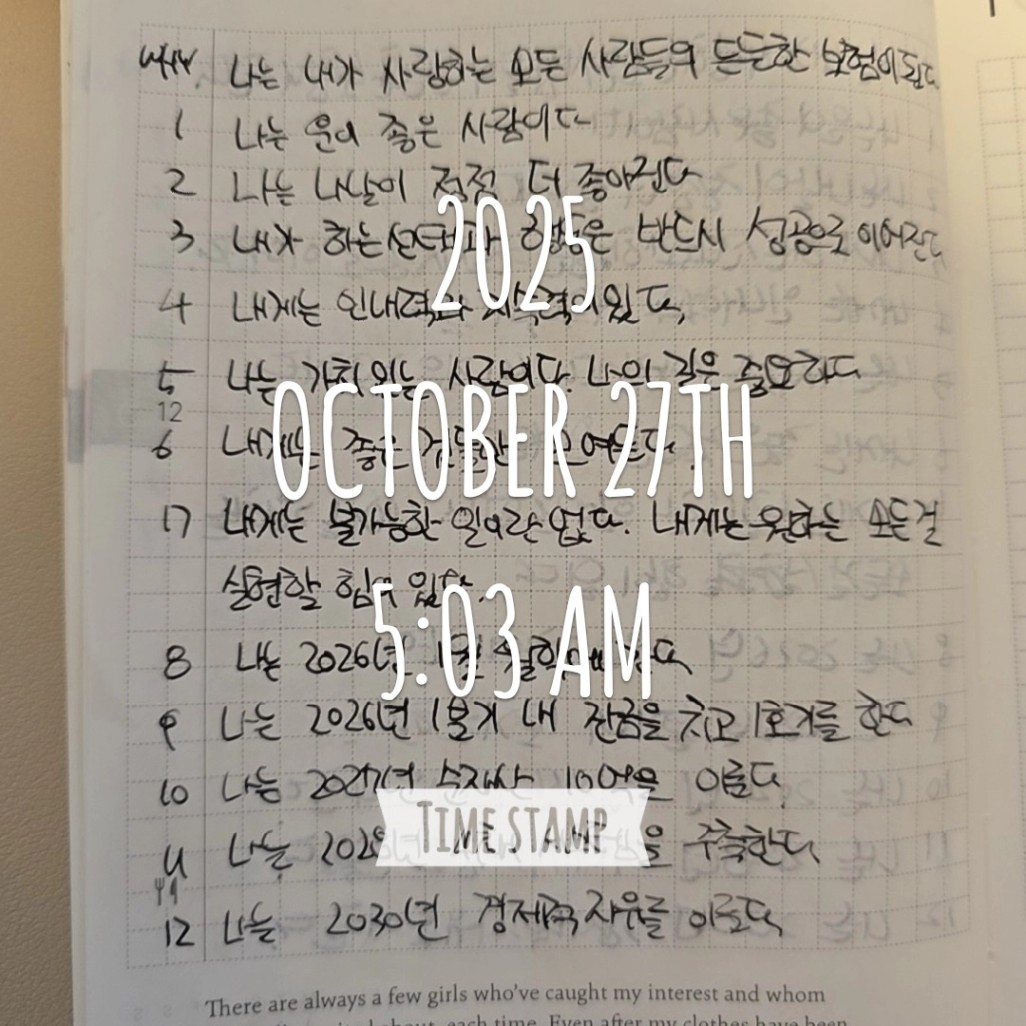 WHY. 나는 내가 사랑하는 모든 사람들의 든든한 보험이 된다
1 나는 운이 좋은 사람이다
2 나는 나날이 점점 더 좋아진다
2025
3 내가 하는 선택과 행동은 반드시 성공으로 이어진다
4 내게는 인내력과 지속력이 있다.
5 나는 가치있는 사람이다. 나의 길은 중요하다
12
OCTOBER 27TH
6 내게는 좋은 모여든다.
17 내게는 불가능한 일이란 없다. 내게는 원하는 모든걸
실현할 힘이 있다.
5:03 AM
8 나는 2026년 1월
9 나는 2026년 1분기 내 잔금을 치고 1호기를 한다
10 나는 2027년 순자산 10억을 이룬다.
TIME STAMP
11 나는 을 구축한다.
12 나는 2030년 경제적 자유를 이룬다.
There are always a few girls who've caught my interest and whom
about, each time. Even after my clothes have been